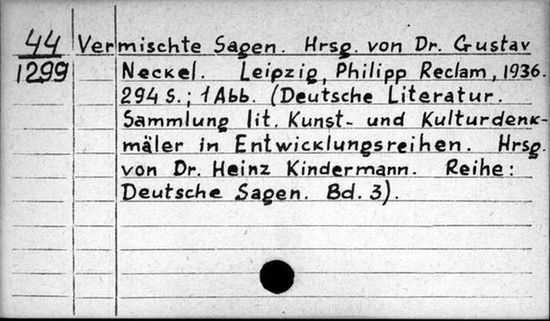 44 Vermischte Sagen. Hrsg. von Dr. Gustav
1299 Neckel. Leipzig, Philipp Reclam, 1936.
294 S.; 1 Abb. (Deutsche Literatur.
Sammlung lit. Kunst- und Kulturdenk-
mäler in Entwicklungsreihen. Hrsg.
von Dr. Heinz Kindermann. Reihe:
Deutsche Sagen. Bd. 3).